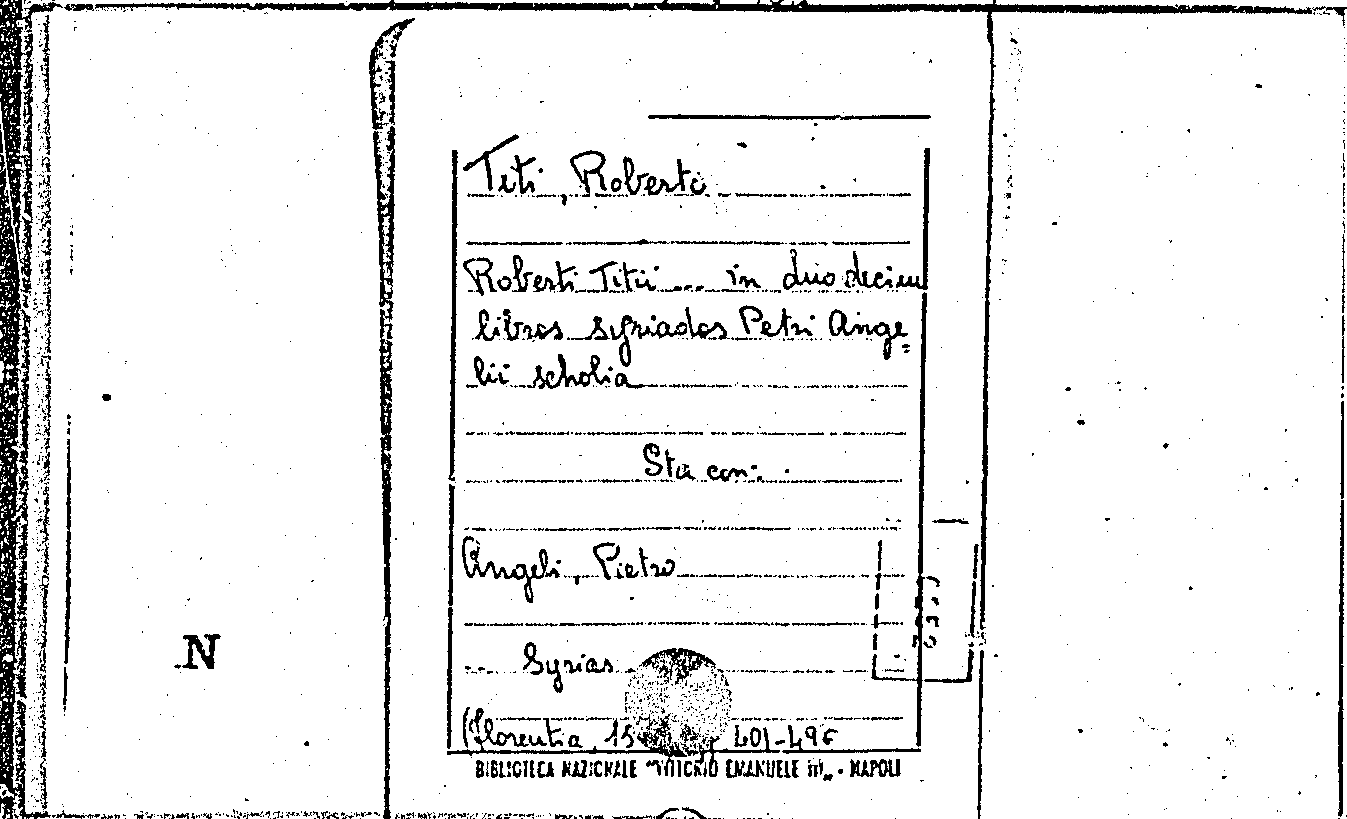 Titi, Roberto
Roberti Titii ... in duodecim
libros syriados Petri Ange=
lii scholia
Sta con:
Angeli, Pietro
... Syrias
(Florentia, 15 401-496
BIBLIOTECA NAZIONALE "VITTORIO EMANUELE III" - NAPOLI
N